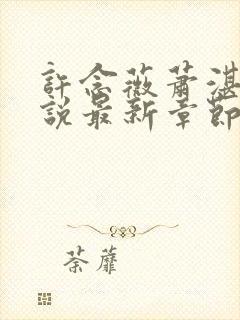 許念薇蕭湛
說最新章節
荼蘼